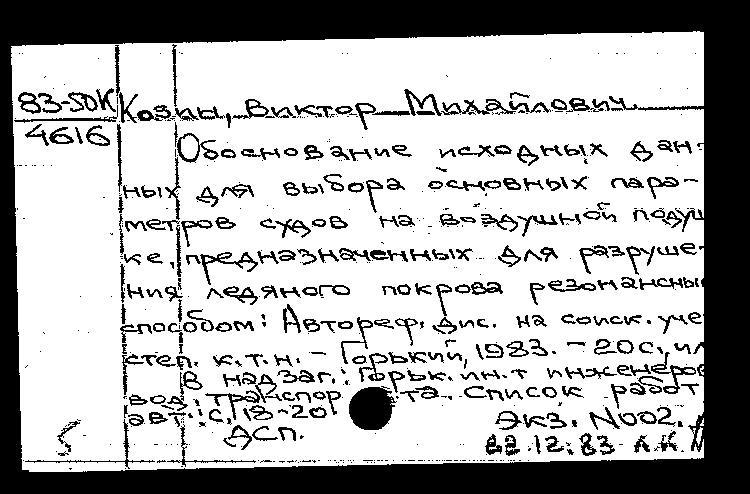 83-50К Козин, Виктор Михайлович.
4616
Обоснование исходных дан-
ных для выбора основных пара-
метров судов на воздушной подуш
ке, предназначенных для разруше-
ния ледяного покрова резонансны
способом: Автореф. дис. на соиск. уче
степ. к.т.н. - Горький, 1983. - 20с., ил
В надзаг.: Горьк. ин.т инженеров
вод. транспор та. Список работ
авт.: с. 18-20.
5 ДСП. Экз. N002.
22.12.83 А.К.